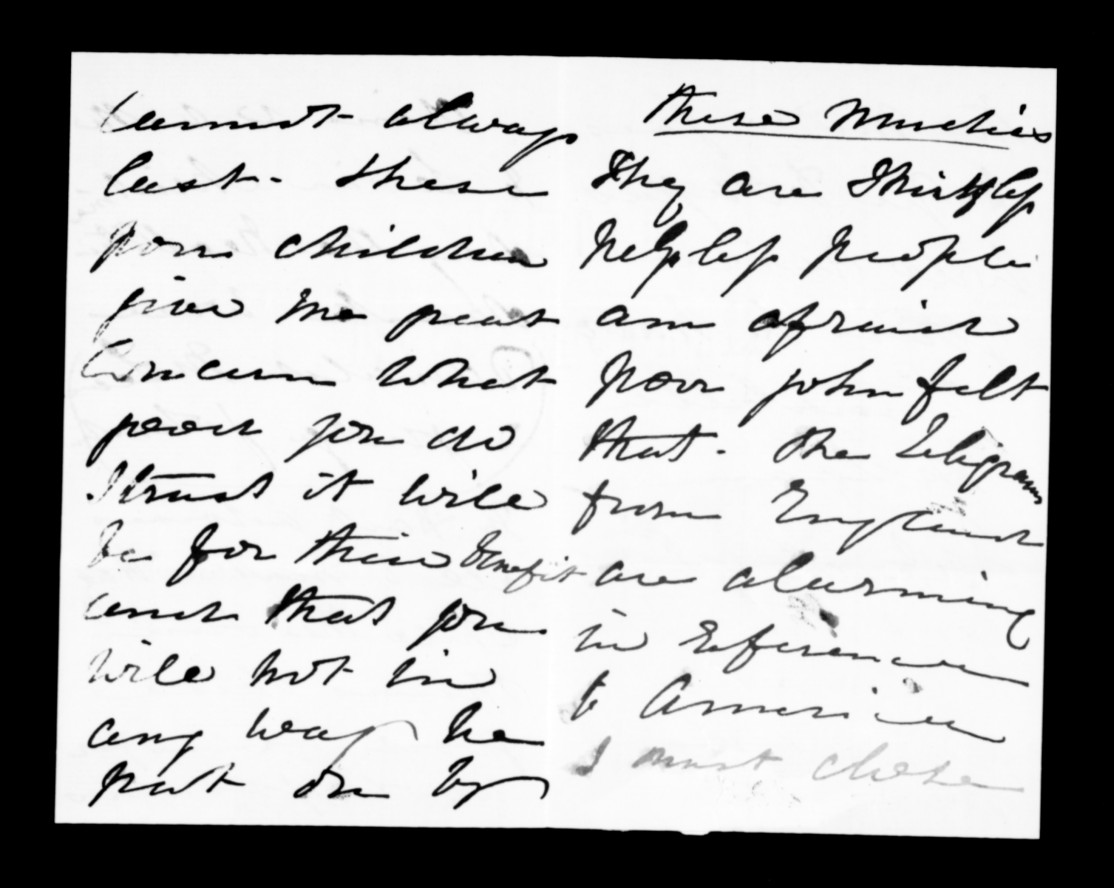 cannot always
last - these
poor children
give me great
Concern What
good you do
I trust it will
be for their benefit
and that you
will not in
any way be
put on by
these
They are thriftless
helpless people
am afraid
poor John felt
that - The Telegrams
from England
are alarming
in reference
to America
I must close